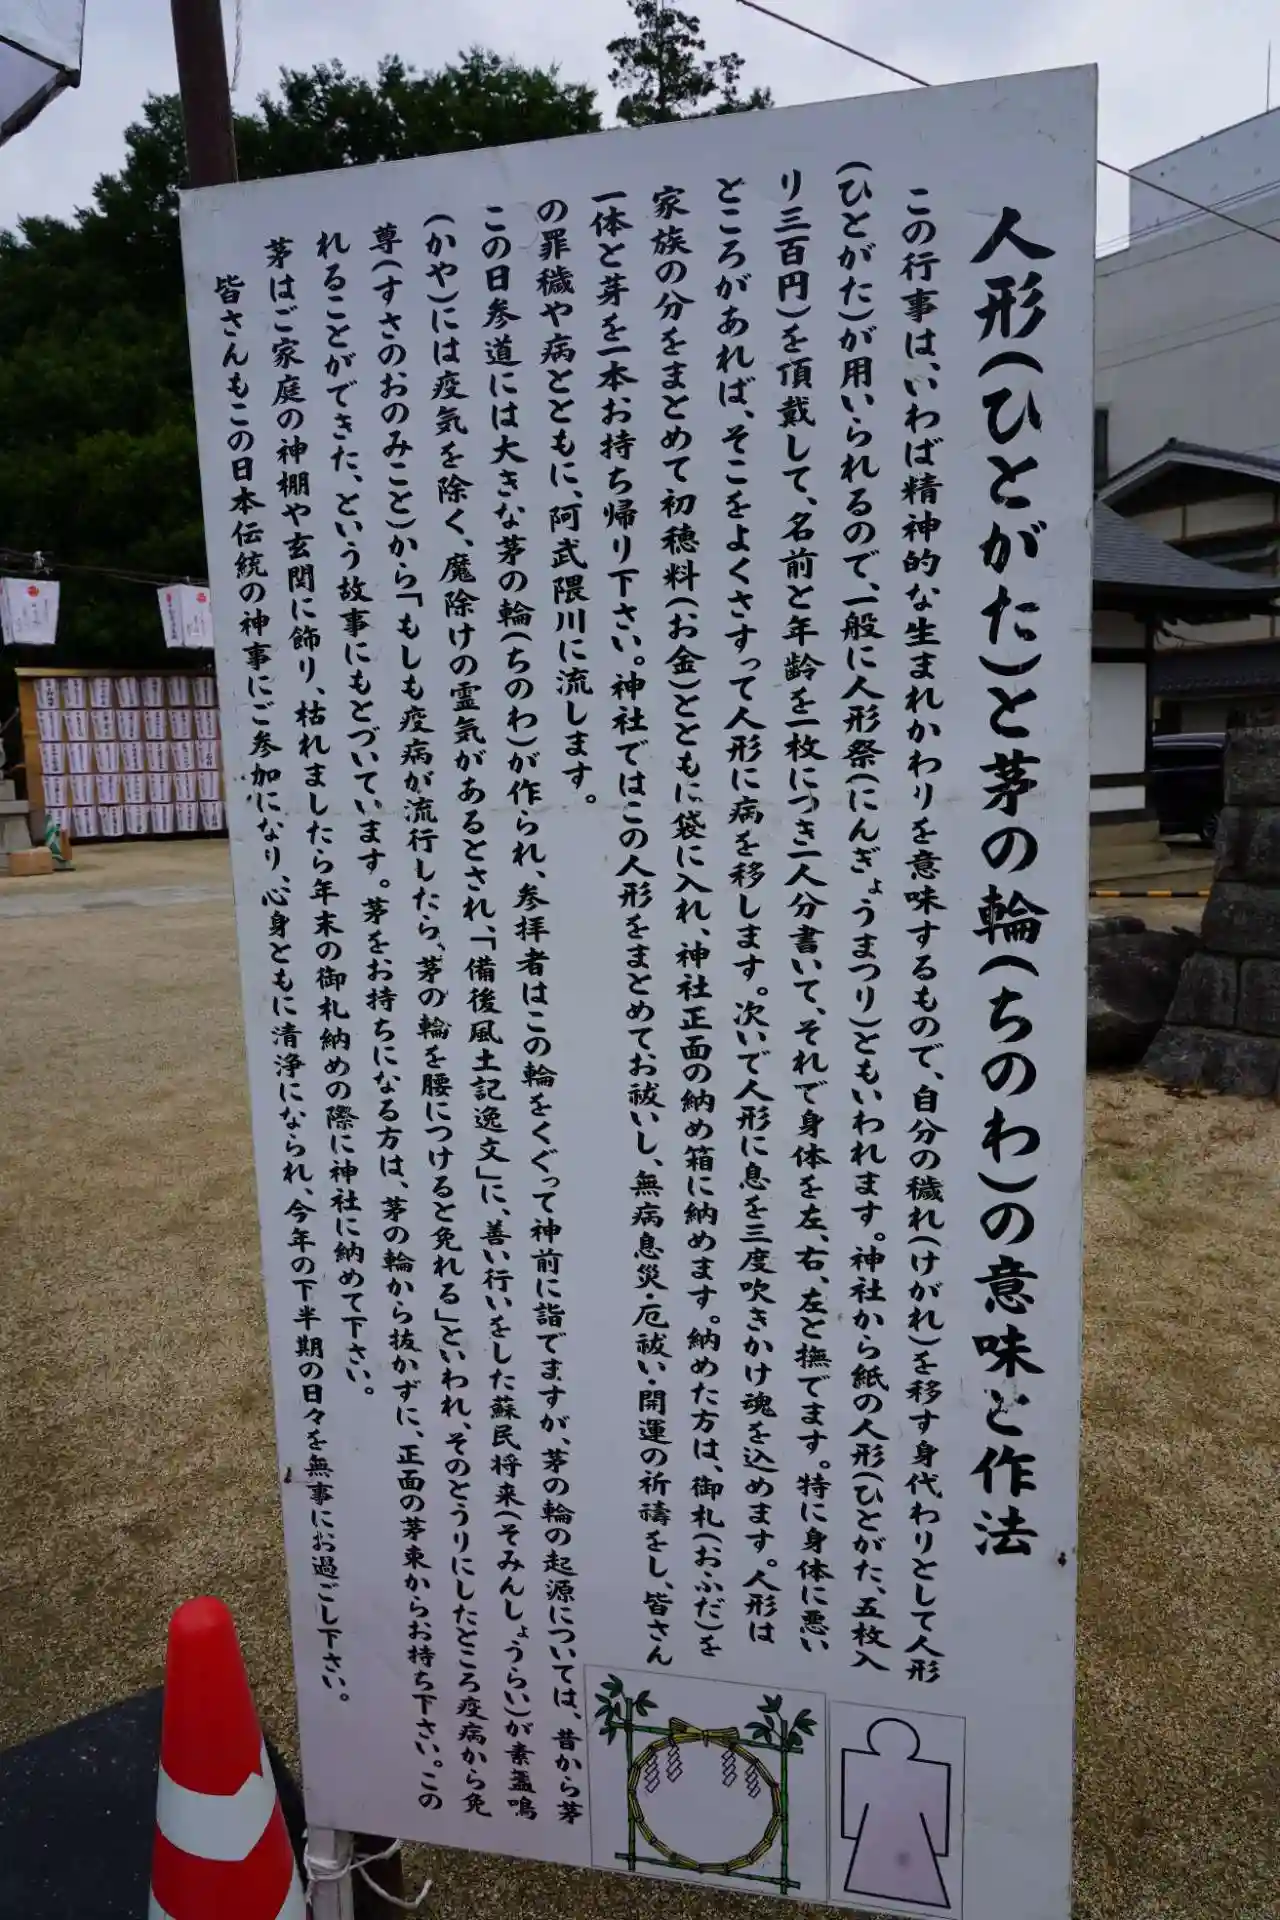 人形(ひとがた)と茅の輪(ちのわ)の意味と作法
この行事は、いわば精神的な生まれかわりを意味するもので、自分の穢れ(けがれ)を移す身代わりとして人形
(ひとがた)が用いられるので、一般に人形祭(にんぎょうまつり)ともいわれます。神社から紙の人形(ひとがた、五枚入
り三百円)を頂戴して、名前と年齢を一枚につき一人分書いて、それで身体を左、右、左と撫でます。特に身体に悪い
ところがあれば、そこをよくさすって人形に病を移します。次いで人形に息を三度吹きかけ魂を込めます。人形は
家族の分をまとめて初穂料(お金)とともに袋に入れ、神社正面の納め箱に納めます。納めた方は、御札(おふだ)を
一体と芽を一本お持ち帰り下さい。神社ではこの人形をまとめてお祓いし、無病息災・厄祓い・開運の祈禱をし、皆さん
の罪穢や病とともに、阿武隈川に流します。
この日参道には大きな茅の輪(ちのわ)が作られ、参拝者はこの輪をくぐって神前に詣でますが、茅の輪の起源については、昔から茅
(かや)には疫気を除く、魔除けの霊気があるとされ、「備後風土記逸文」に、善い行いをした蘇民将来(そみんしょうらい)が素盞鳴
尊(すさのおのみこと)から「もしも疫病が流行したら、茅の輪を腰につけると免れる」といわれ、そのとうりにしたところ疫病から免
れることができた、という故事にもとづいています。茅をお持ちになる方は、茅の輪から抜かずに、正面の茅束からお持ち下さい。この
茅はご家庭の神棚や玄関に飾り、枯れましたら年末の御札納めの際に神社に納めて下さい。
皆さんもこの日本伝統の神事にご参加になり、心身ともに清浄になられ、今年の下半期の日々を無事にお過ごし下さい。